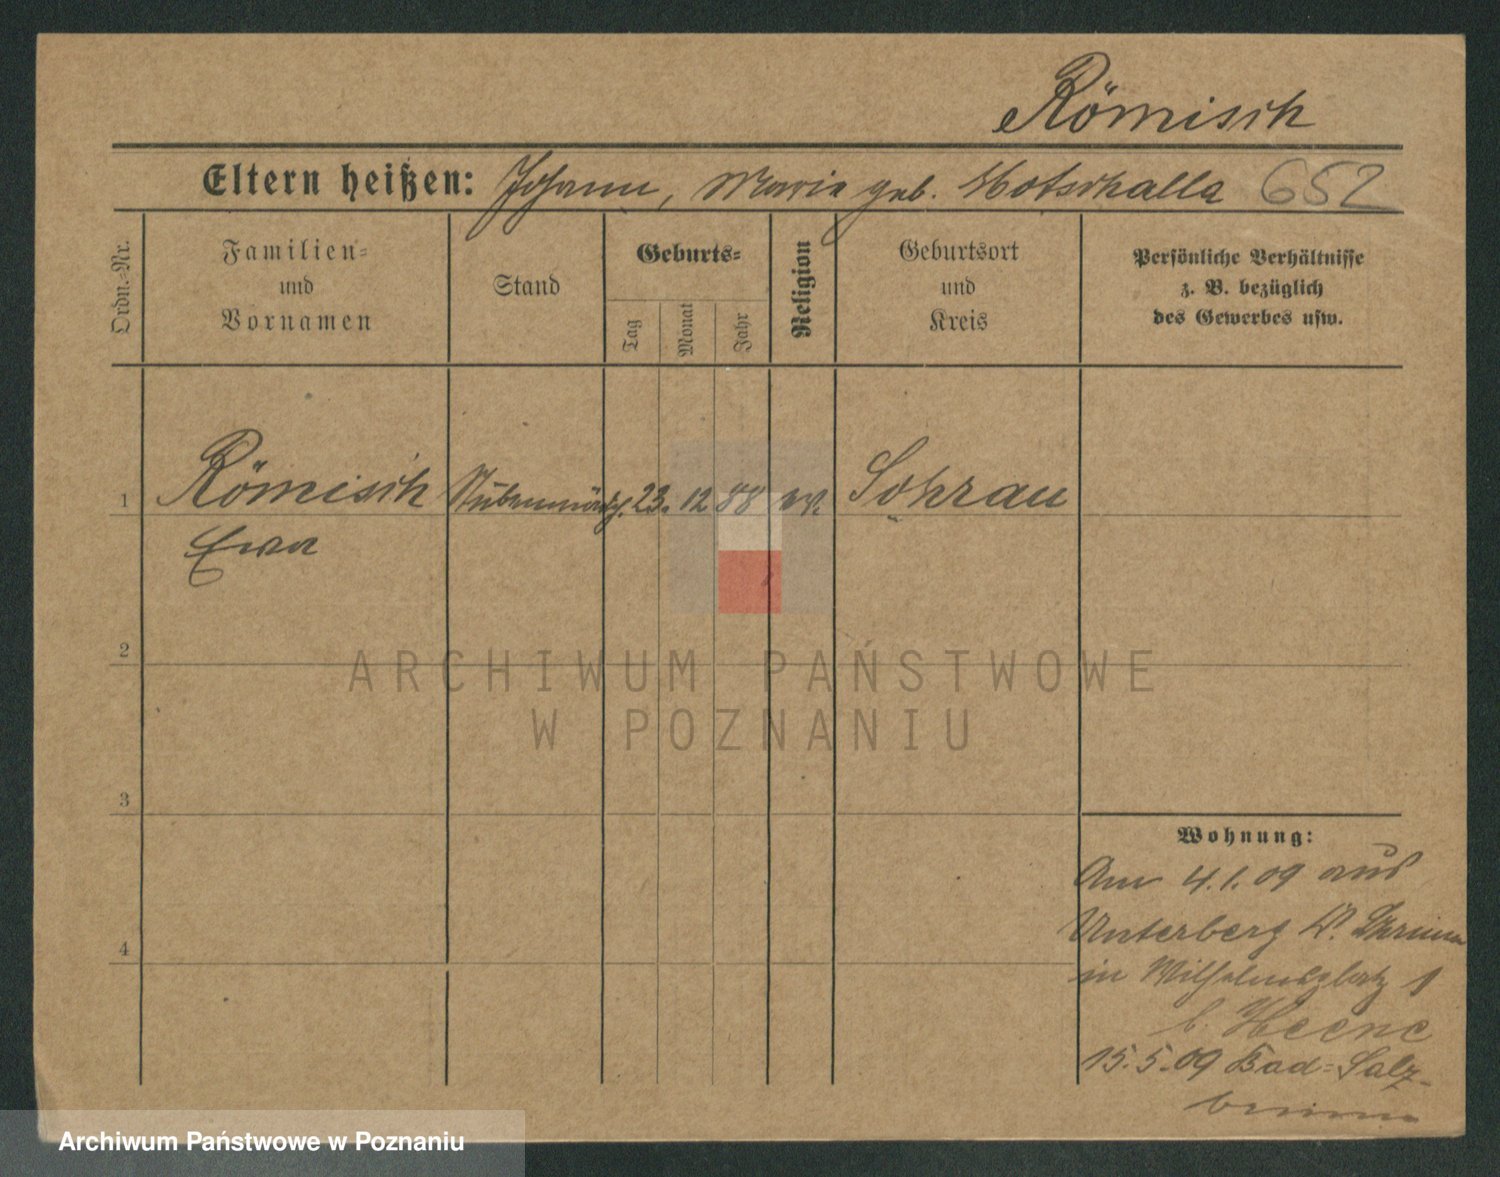 Römisch
Eltern heißen: Johann, Maria geb. Motschalla 652
Ordn.-Nr.
Familien-
und
Vornamen
Stand
Geburts-
Tag
Monat
Jahr
Religion
Geburtsort
und
Kreis
Persönliche Verhältnisse
z. B. bezüglich
des Gewerbes usw.
1 Römisch Stubenmädch. 23. 12 88 ev. Sohrau
Ewa
2
3
4
Wohnung:
Am 4.1.09 aus
Unterberg Kr.
in Wilhelmsplatz 1
b. Heene
15.5.09 Bad-Salz-
brunn
ARCHIWUM PAŃSTWOWE
W POZNANIU
Archiwum Państwowe w Poznaniu